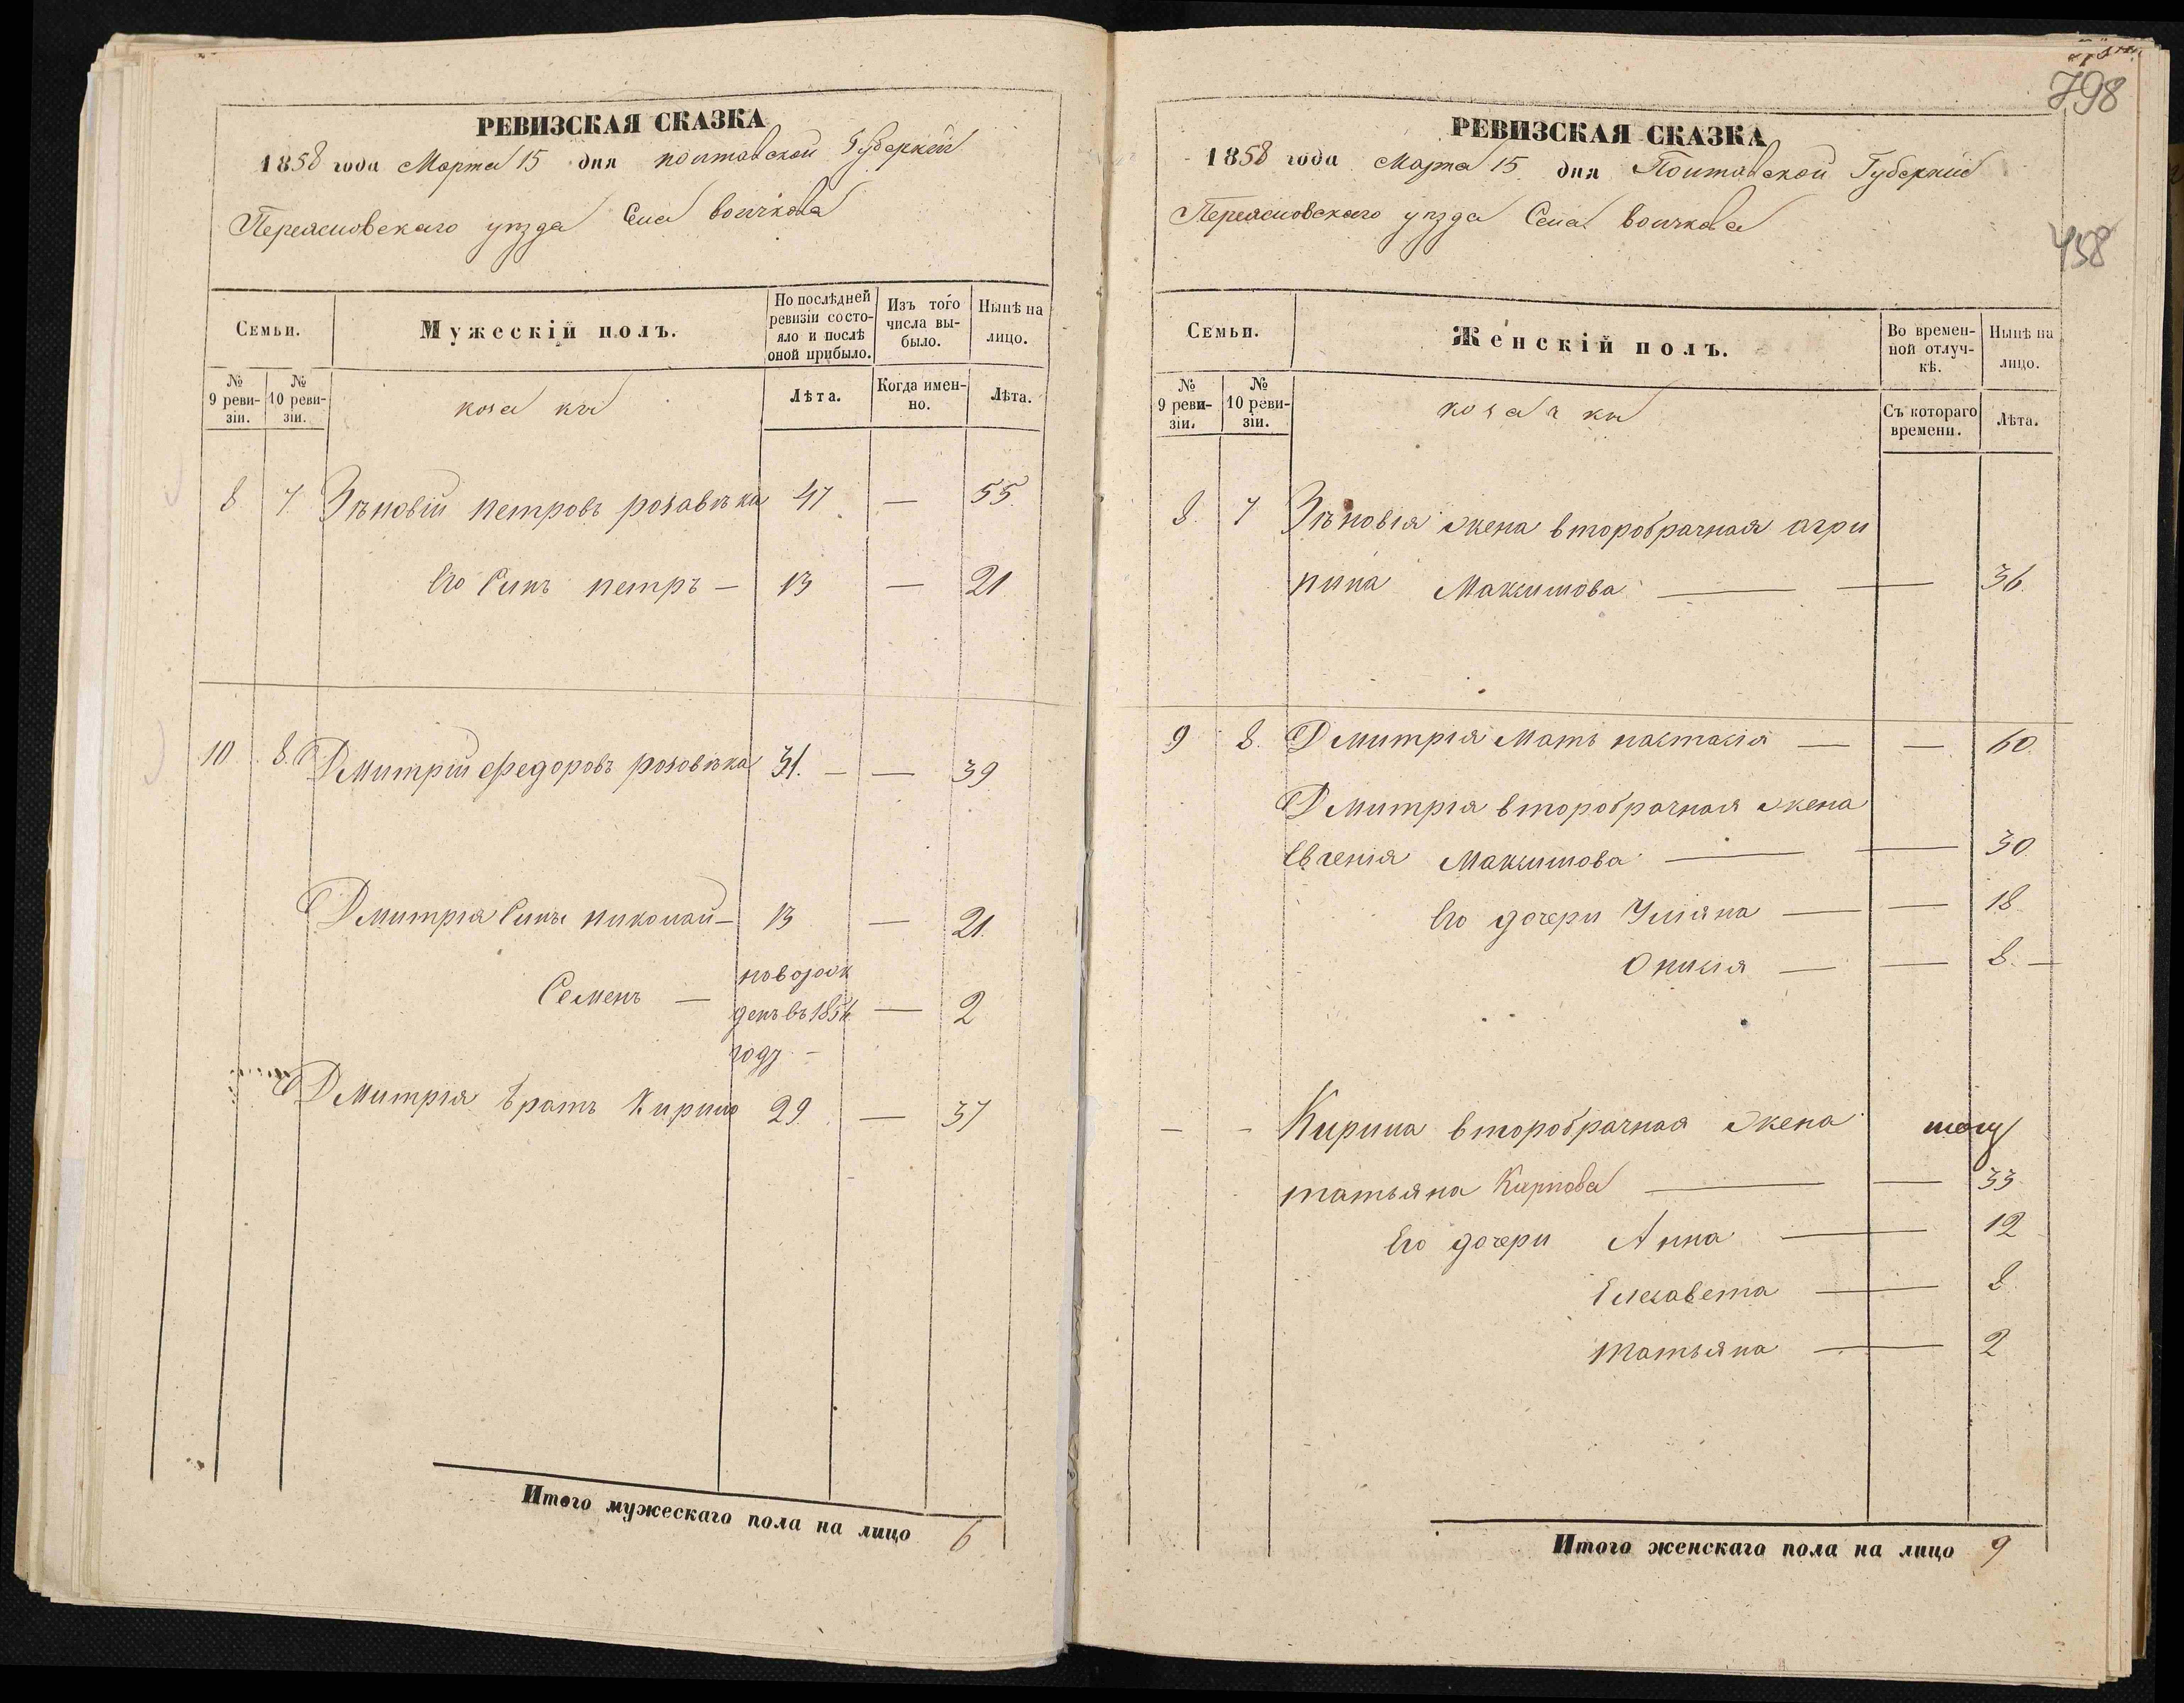 РЕВИЗСКАЯ СКАЗКА
1858 года Марта 15 дня полтавской Губернии
Переясловского уѣзда Села вончкова
Семьи. Мужескій полъ. По послѣдней ревизіи состояло и послѣ оной прибыло. Изъ того числа выбыло. Нынѣ на лицо.
№ 9 ревизіи. № 10 ревизіи. козаки Лѣта. Когда именно. Лѣта.
8 7 Зѣновій петровъ розавѣка 47 — 55.
Его Синъ петръ — 13 — 21
10 8. Дмитрій федоровъ розовѣка 31. — — 39
Дмитрія Сины николай — 13 — 21.
Семенъ — новорож
денъ въ 1856 — 2
году —
Дмитрія братъ Кирило 29. — 37
Итого мужескаго пола на лицо 6
798
458
РЕВИЗСКАЯ СКАЗКА
1858 года Марта 15 дня Полтавской Губерніи
Переясловского уѣзда Села вончкова
Семьи. Женскій полъ. Во временной отлучкѣ. Нынѣ на лицо.
№ 9 ревизіи. № 10 ревизіи. козачки Съ котораго времени. Лѣта.
8. 7 Зѣновія жена второбрачная агри
пина Максимова — — 36.
9 8. Дмитрія Мать настасія — — 60.
Дмитрія второбрачная жена
Евгенія Максимова — — 30.
Его дочери Уліяна — — 18.
Онисія — — 8. —
— — Кирила второбрачная жена
татьяна Карпова — — 33
Его дочери Анна — 12
Елезавета — 8
татьяна — 2
Итого женскаго пола на лицо 9